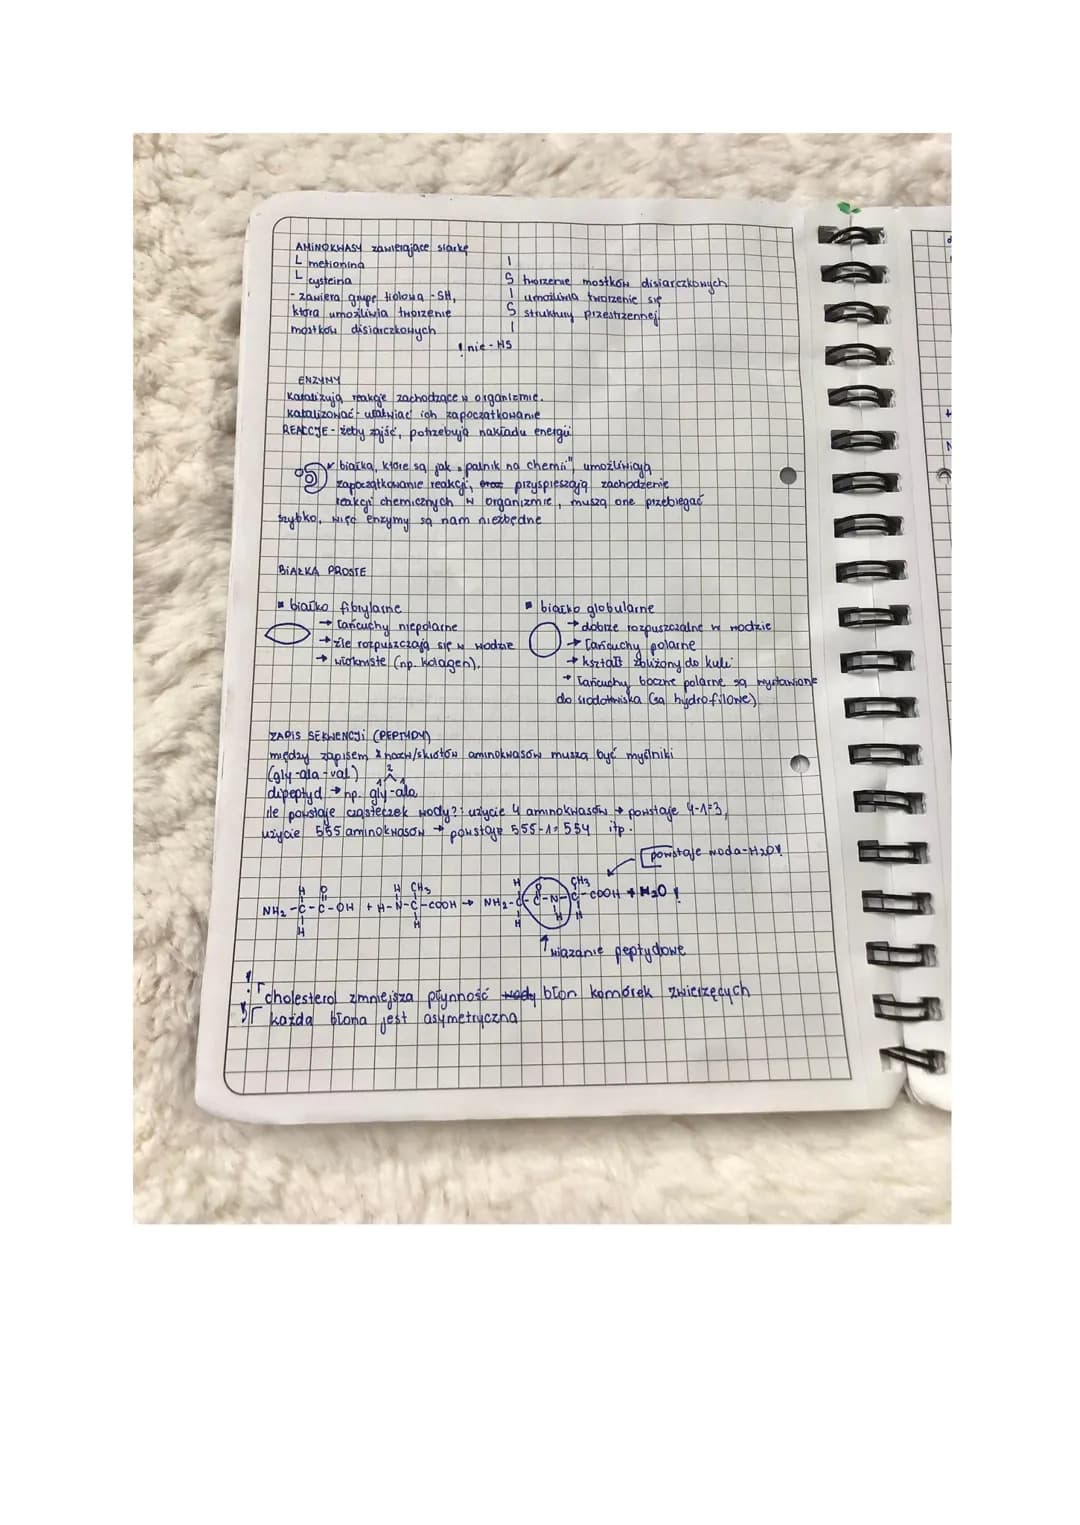 AMINOKWASY zawierające siarkę
L metionina
L cysteina
- zawiera grupę tiolową -SH,
która umożliwia tworzenie
mostków disiarczkowych
! nie - HS
S tworzenie mostków disiarczkowych
umożliwia tworzenie się
S struktury przestrzennej
ENZYMY
Katalizują reakcje zachodzące w organizmie.
Katalizować - ułatwiać ich zapoczątkowanie
REAKCJE - żeby zajść, potrzebują nakładu energii
białka, które są jak "palnik na chemii" umożliwiają
zapoczątkowanie reakcji, oraz przyspieszają zachodzenie
reakcji chemicznych w organizmie, muszą one przebiegać
szybko, więc enzymy są nam niezbędne
BIAŁKA PROSTE
▪ białko fibrylarne
→ łańcuchy niepolarne
→ źle rozpuszczają się w wodzie
→ włókniste (np. kolagen).
▪ białko globularne
→ dobrze rozpuszczalne w wodzie
→ łańcuchy polarne
→ kształt zbliżony do kuli
→ łańcuchy boczne polarne są wystawione
do środowiska (są hydrofilowe)
ZAPIS SEKWENCJI (PEPTYDY)
między zapisem nazw/skrótów aminokwasów muszą być myślniki
(gly-ala-val)
2
1 1
dipeptyd → np. gly-ala
ile powstaje cząsteczek wody?: użycie 4 aminokwasów → powstaje 4-1=3,
użycie 555 aminokwasów → powstaje 555-1=554 itp.
powstaje woda-H2O!
H O H CH3 H O CH3
NH2-C-C-OH + H-N-C-COOH → NH2-C-C-N-C-COOH + H2O !
H H H H H
wiązanie peptydowe
! cholesterol zmniejsza płynność wody błon komórek zwierzęcych
! każda błona jest asymetryczna